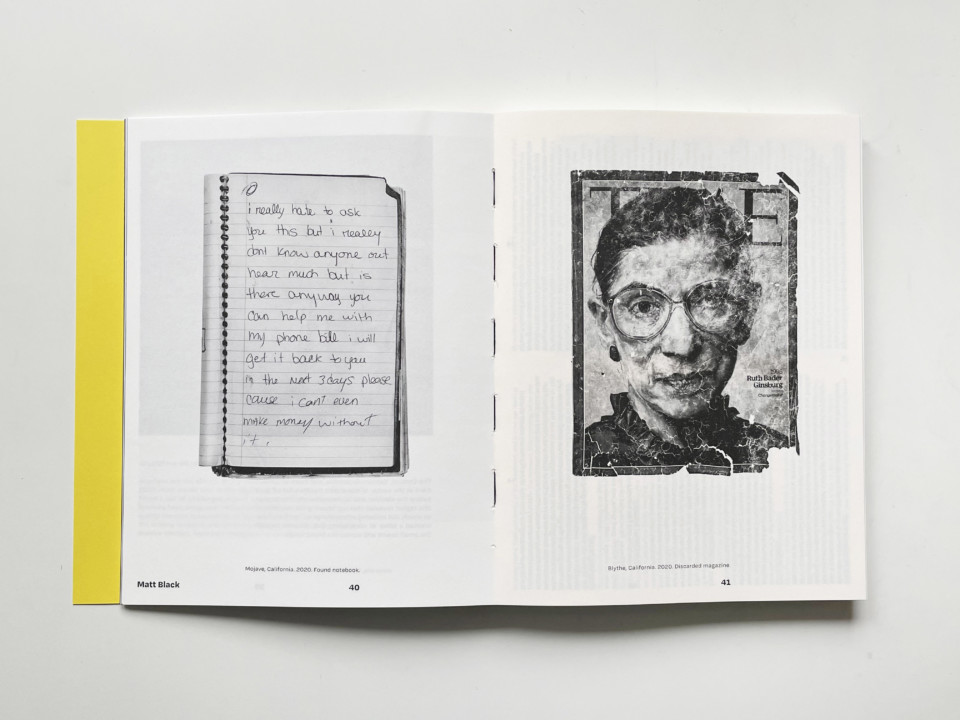 i really hate to ask
you this but i really
dont know anyone out
hear much but is
there anyway you
can help me with
my phone bill i will
get it back to you
in the next 3 days please
cause i can't even
make money without
it.
Mojave, California. 2020. Found notebook.
Matt Black
40
T E
Ruth Bader
Ginsburg
Blythe, California. 2020. Discarded magazine
41